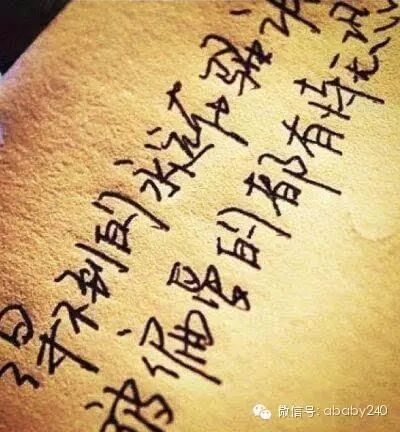 得不到的永远在骚动
被偏爱的都有恃无恐
微信号: ababy240